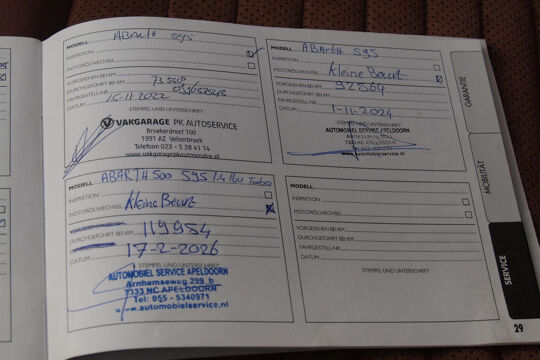 MODELL ABARTH 595
INSPEKTION
MOTORÖLWECHSEL
VORGESEHEN BEI KM
DURCHGEFÜHRT BEI KM
FAHRGESTELL-NR.
DATUM 15-11-2022
STEMPEL UND UNTERSCHRIFT
VAKGARAGE PK AUTOSERVICE
Broekerdreef 100
1991 AZ Velserbroek
Telefoon 023 - 5 38 41 14
www.vakgaragepkautoservice.nl
MODELL ABARTH 595
INSPEKTION
MOTORÖLWECHSEL Kleine Beurt
VORGESEHEN BEI KM
DURCHGEFÜHRT BEI KM 92564
FAHRGESTELL-NR.
DATUM 1-11-2024
STEMPEL UND UNTERSCHRIFT
AUTOMOBIEL SERVICE APELDOORN
7333 NC APELDOORN
www.automobielservice.nl
MODELL ABARTH 500 595 1.4 16v Turbo
INSPEKTION
MOTORÖLWECHSEL Kleine Beurt
DURCHGEFÜHRT BEI KM 119954
DATUM 17-2-2026
STEMPEL UND UNTERSCHRIFT
AUTOMOBIEL SERVICE APELDOORN
Arnhemseweg 299 b
7333 NC APELDOORN
Tel: 055 - 5340971
www.automobielservice.nl
MODELL
INSPEKTION
MOTORÖLWECHSEL
VORGESEHEN BEI KM
DURCHGEFÜHRT BEI KM
FAHRGESTELL-NR.
DATUM
STEMPEL UND UNTERSCHRIFT
GARANTIE
MOBILITÄT
SERVICE
29